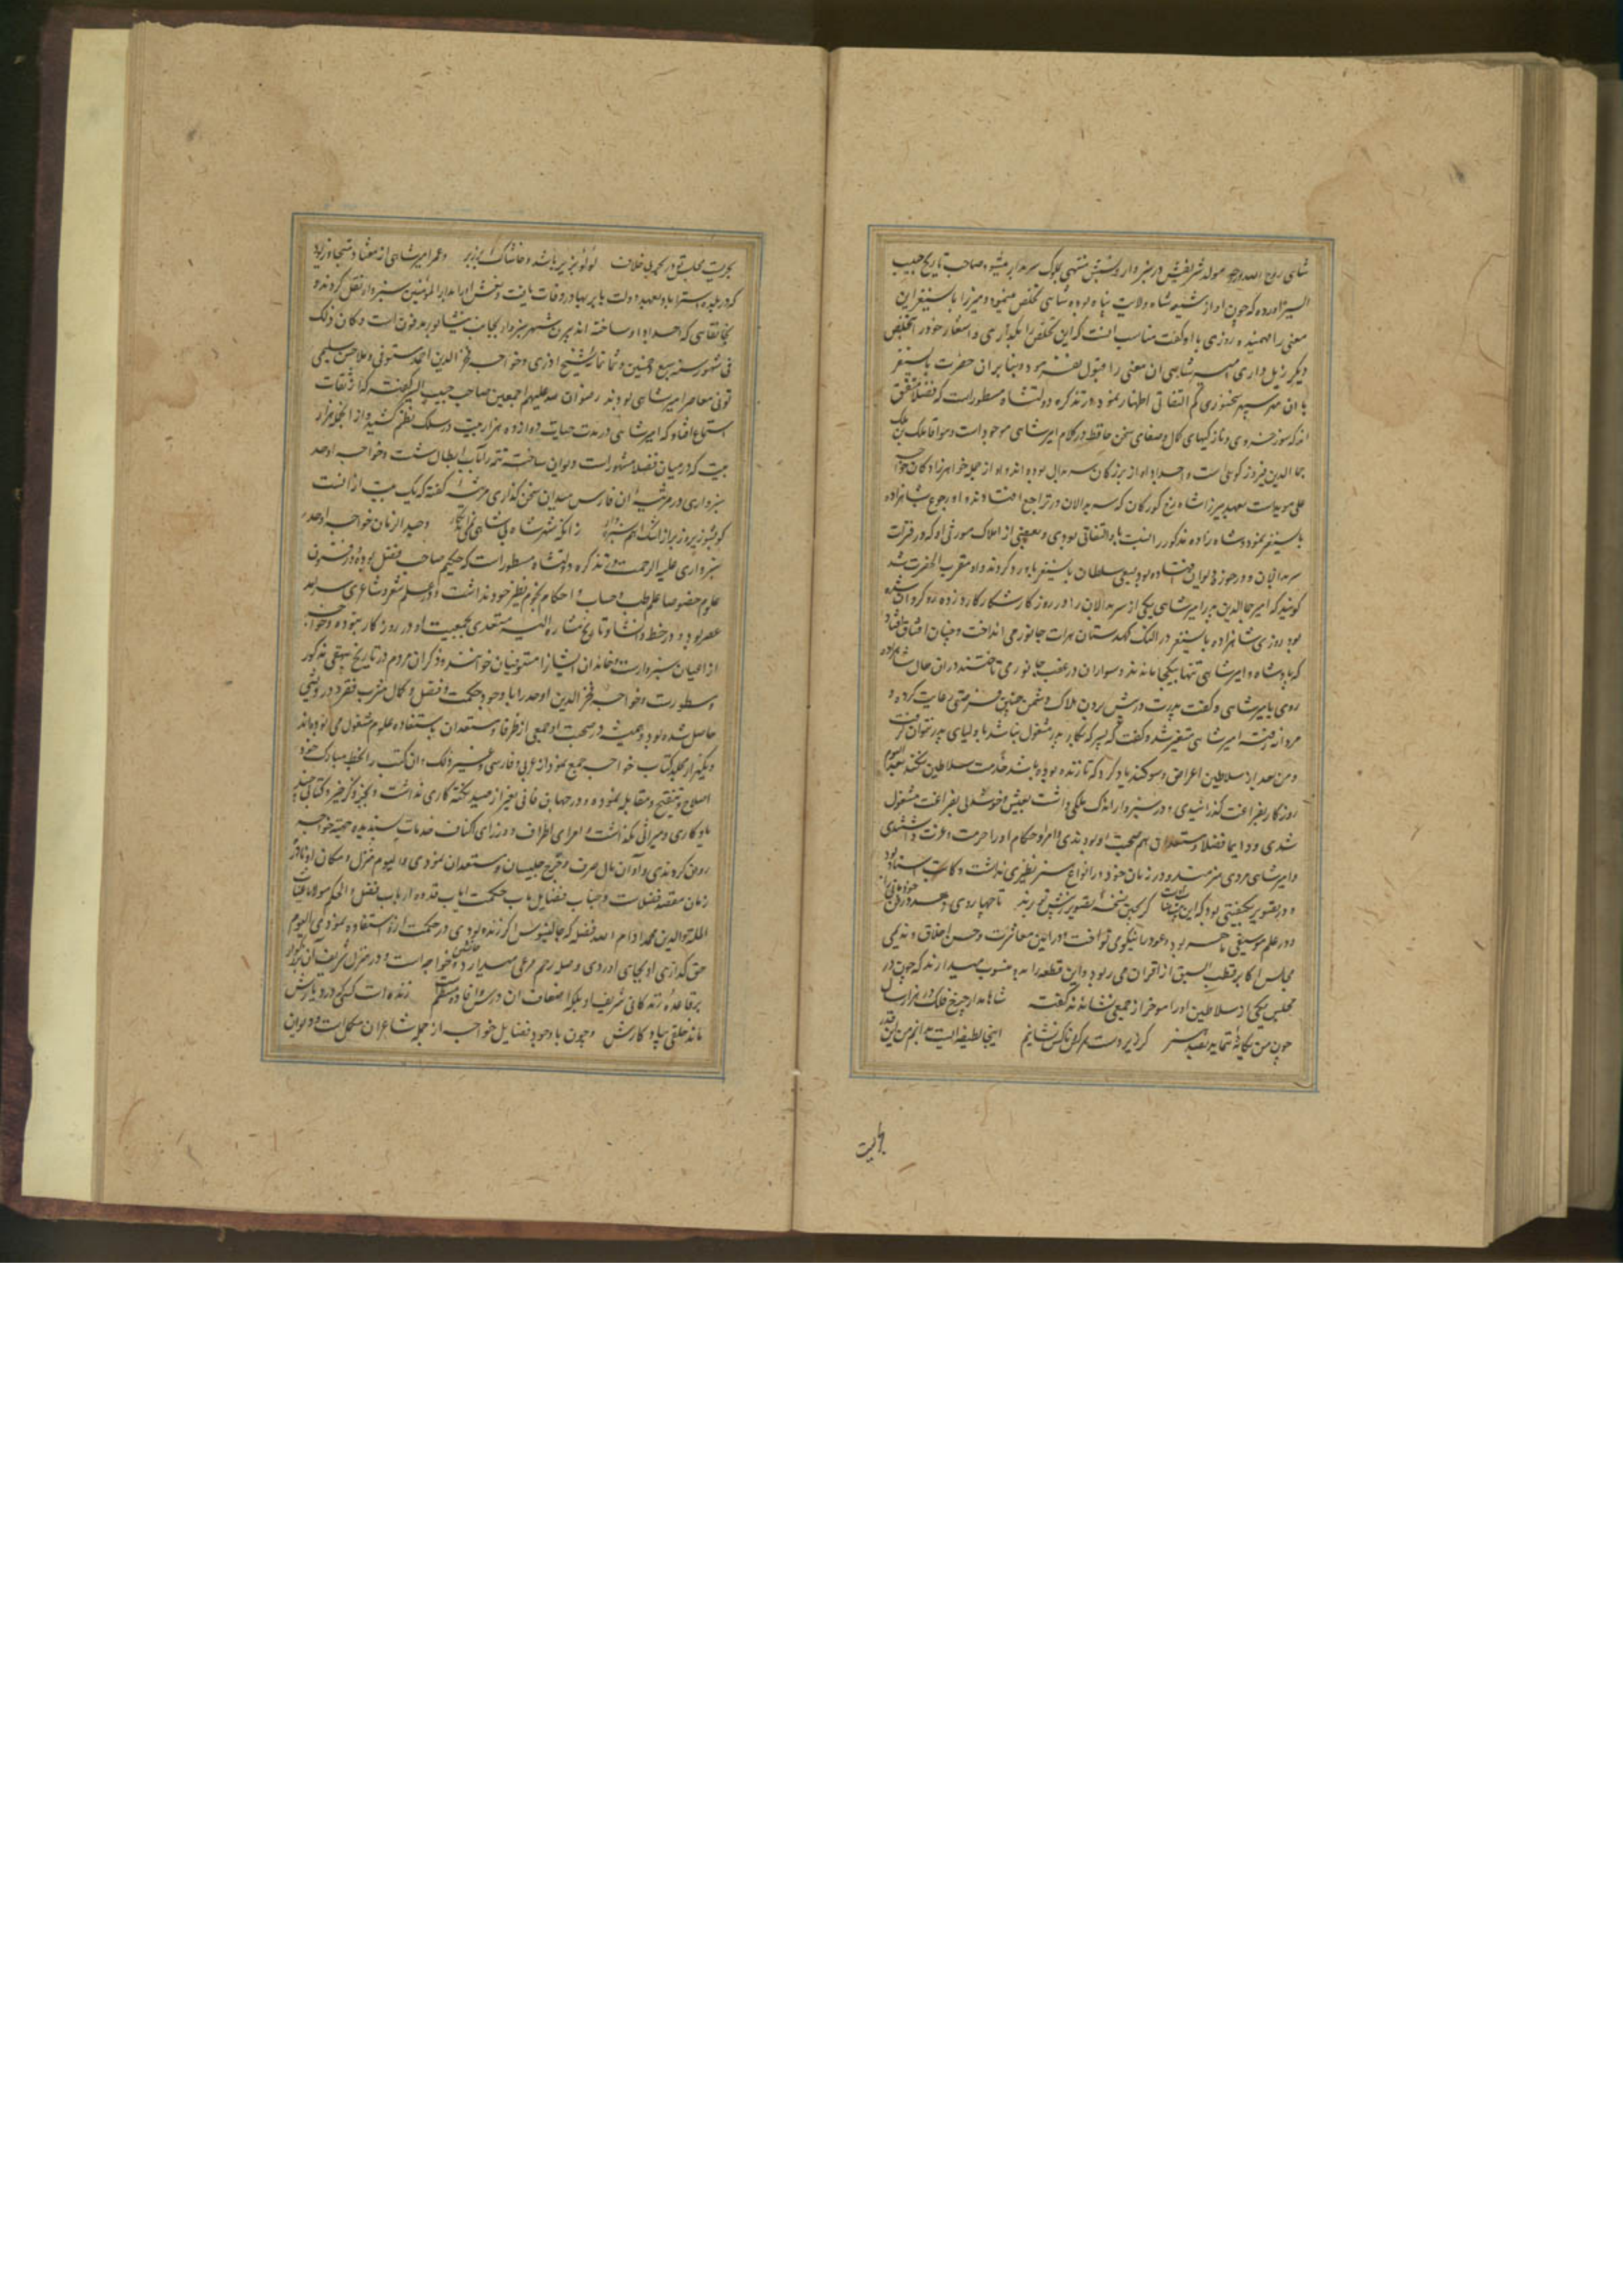 شاهی روح الله روحه مولد شریفش در سبزوار و نسبش منتهی بملوک سربدار میشود صاحب تاریخ حبیب
السیر آورده که چون او از شیعه شاه ولایت پناه بوده شاهی تخلص مینمود و میرزا بایسنغر این
معنی را فهمیده روزی با او گفت مناسب آنست که این تخلص را بگذاری و اشعار خود را بتخلص
دیگر زیل داری امیر شاهی آن معنی را قبول نفرمود و بنابر آن حضرت بایسنغر
با آن مهر سپهر سخنوری کم التفاتی اظهار نمود در تذکره دولتشاه مسطور است که فضلا متفق
اند که سوز خسروی و نازکیهای کمال و صفای سخن حافظ در کلام امیر شاهی موجود است و هو آقا ملک بن ملک
جمال الدین فیروزکوهی است و اجداد او از بزرگان سربدال بوده اند و او از جمله خواهرزادگان خواجه
علی مویداست بعهد میرزا شاهرخ کورکان که سربدالان در تراجع افتادند او رجوع بشاهزاده
بایسنغر نمود و شاهزاده مذکور را نسبت باو التفاتی بودی و بعضی از املاک موروثی او که در فترات
سربدالان در حوزه دیوان افتاده بود بسعی سلطان بایسنغر باو رد کردند و او مقرب الحضرت شد
گویند که امیر جمال الدین پدر امیر شاهی یکی از سربدالان را در روز کار شکار کارد زده روگردان شده
بود روزی شاهزاده بایسنغر در النک کهدستان هرات جانور می انداخت و چنان اتفاق افتاد
که پادشاه و امیر شاهی تنها بیکجا ماندند و سواران در عقب جانور می تاختند در آن حال شاهزاده
روی بامیر شاهی و گفت پدرت در پیش بردن هلاک دشمن چنین فرصتی رعایت کرده و
مرد از فتنه امیر شاهی متغیر شد و گفت که پسر که بکار پدر مشغول نباشد با او لیای پدر نتوان گفت
و من بعد از سلاطین اعراض و سوگند یاد کرد که تا زنده بوده باشد خدمت سلاطین نکند بعد الیوم
روزگار بفراغت گذرانیدی و در سبزوار اندک ملکی داشت بعیش و خوشدلی بفراغت مشغول
شدی و دایما فضلا و مستعدان هم صحبت او بودندی و امرا و حکام او را حرمت و عزت داشتندی
و امیر شاهی مردی هنرمند و در زمان خود در انواع هنر نظیری نداشت و کاتب استاد بود
و در تصویر بحیثیتی بود که این بیت
و در علم موسیقی ماهر بود و عود را نیکوی نواخت و در آیین معاشرت و حسن اخلاق و ندیمی
مجلس اکابر قصب السبق از اقران می ربود و این قطعه را بدو منسوب میدارند که چون در
مجلس یکی از سلاطین او را موخر از جمعی نشاندند گفت شاها مدار چرخ فلک در هزار سال
چون من یگانهٔ ننماید بصد هنر گر زیر دست هر کس و ناکس نشانیم اینجا لطیفه ایست بدانم من این قدر
بحریست
بحریست مجلس تو و در بحر بی خلاف لولو بزیر باشد و خاشاک بر زبر و عمر امیر شاهی از هفتاد متجاوز بود
که در بلده استراباد و بعهد دولت بابر بهادر وفات یافت و نعش او را بدار المؤمنین سبزوار نقل کردند و
بخانقاهی که اجداد او ساخته اند بیرون شهر سبزوار بجانب نیشابور مدفون است و کان ذلک
فی شهور سنه سبع و خمسین و ثمانمائه شیخ آذری و خواجه فخر الدین اوحد مستوفی و ملا حسن سلیمی
تونی معاصر امیر شاهی بودند رضوان الله علیهم اجمعین صاحب حبیب السیر گفته که از ثقات
استماع افتاد که امیر شاهی در مدت حیات دوازده هزار بیت در سلک نظم کشید و از آنجا هزار
بیت که در میان فضلا مشهور است دیوان ساخته تتمه را بآب ابطال شست و خواجه اوحد
سبزواری در مرثیه آن فارس میدان سخن گذاری مرثیه گفته که یک بیت از آن اینست
وحید الزمان خواجه اوحد
سبزواری علیه الرحمة در تذکره دولتشاه مسطور است که حکیم صاحب فضل بوده و در فنون
علوم خصوصا علم طب و حساب و احکام نجوم نظیر خود نداشت و در علم شعر و شاعری سرآمد
عصر بود و در خط و انشا و تاریخ مشار الیه مستعدی بجمعیت او در روزگار نبوده و خواجه
از اعیان سبزوار است و خاندان ایشان را مستوفیان خوانند و ذکر آن مردم در تاریخ بیهقی مذکور
و مسطور است و خواجه فخر الدین اوحد را با وجود حکمت و فضل و کمال مشرب فقر و درویشی
حاصل شده بود و همیشه در صحبت او جمعی از ظرفا و مستعدان باستفاده علوم مشغول می بوده اند
و یکهزار مجلد کتاب خواجه جمع نمود از عربی و فارسی و غیر ذلک و آن کتب را بخط مبارک خود
اصلاح و تنقیح و مقابله نموده و در جهان فانی بغیر از صید نکته کاری نداشت و بجز ذکر خیر و کتابی چند
یادگاری و میراثی نگذاشت و امرای اطراف و وزرای اکناف خدمات پسندیده جهت خواجه
روان کردندی و او آن مال صرف و خرج جلیسان و مستعدان نمودی و الیوم منزل و مکان او تا آخر
زمان مقصد فضلاست و جناب فضایل مآب حکمت ایاب قدوه ارباب فضل و الحکم مولانا غیاث
الملة والدین محمد ادام الله فضله که جالینوس اگر زنده بودی در حکمت از او استفاده نمودی الیوم
حق گذاری او بجای آوردی وصله رحم مرعی میدارد خواجه است و در منزل شریف آن بزرگوار
بر قاعده زندگانی شریف او بلکه اضعاف آن در سش افاده مستقیم زنده است کسی که در دیارش
ماند خلفی بیادگارش و چون با وجود فضایل خواجه از جمله شاعران مکمل است و دیوان